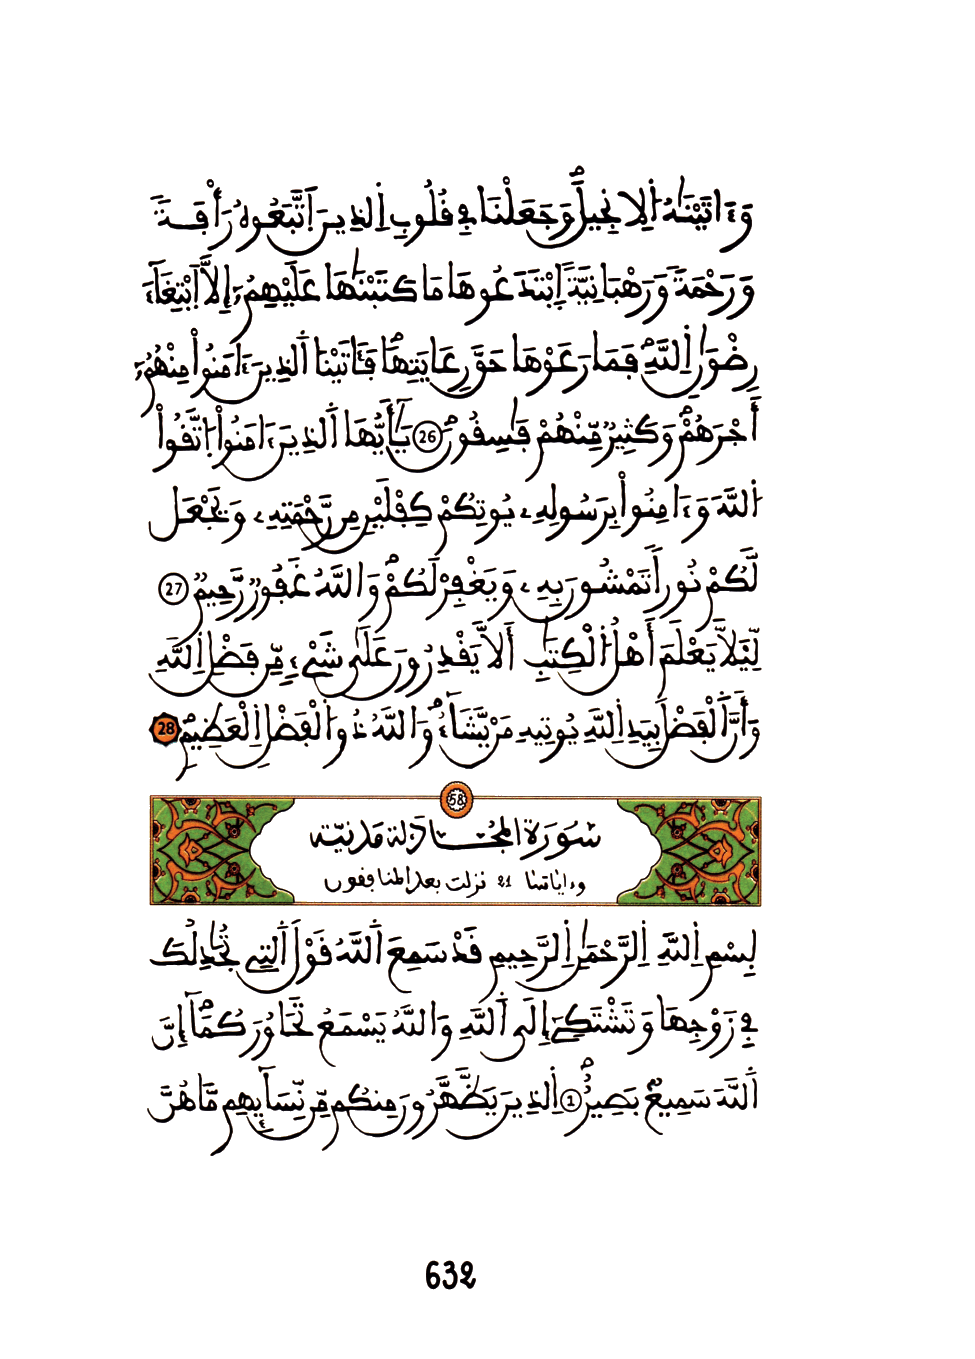 وَءَاتَيْنَٰهُ اُ۬لِانجِيلَۖ وَجَعَلْنَا فِے قُلُوبِ اِ۬لذِينَ اَ۪تَّبَعُوهُ رَأْفَةٗ
وَرَحْمَةٗۖ وَرَهْبَانِيَّةً اِ۪بْتَدَعُوهَا مَا كَتَبْنَٰهَا عَلَيْهِمُۥٓ إِلَّا اَ۪بْتِغَآءَ
رِضْوَٰنِ اِ۬للَّهِۖ فَمَا رَعَوْهَا حَقَّ رِعَايَتِهَاۖ فَـَٔاتَيْنَا اَ۬لذِينَ ءَامَنُواْ مِنْهُمُۥٓ
أَجْرَهُمْۖ وَكَثِيرٞ مِّنْهُمْ فَٰسِقُونَۖ 26 يَٰٓأَيُّهَا اَ۬لذِينَ ءَامَنُواْ اُ۪تَّقُواْ
اُ۬للَّهَ وَءَامِنُواْ بِرَسُولِهِۦ يُوتِكُمْ كِفْلَيْنِ مِن رَّحْمَتِهِۦ وَيَجْعَل
لَّكُمْ نُوراٗ تَمْشُونَ بِهِۦ وَيَغْفِرْ لَكُمْۖ وَاللَّهُ غَفُورٞ رَّحِيمٞ 27
لِّيَ۬لَّا يَعْلَمَ أَهْلُ اُ۬لْكِتَٰبِ أَلَّا يَقْدِرُونَ عَلَىٰ شَےْءٖ مِّن فَضْلِ اِ۬للَّهِ
وَأَنَّ اَ۬لْفَضْلَ بِيَدِ اِ۬للَّهِ يُوتِيهِ مَنْ يَّشَآءُۖ وَاللَّهُ ذُو اُ۬لْفَضْلِ اِ۬لْعَظِيمِۖ 28
58
سُورَة المُجَادَلة مَدنيّة
وءاياتها 21 نزلت بعد المنافقون
بِسْمِ اِ۬للَّهِ اِ۬لرَّحْمَٰنِ اِ۬لرَّحِيمِ قَدْ سَمِعَ اَ۬للَّهُ قَوْلَ اَ۬لتِے تُجَٰدِلُكَ
فِے زَوْجِهَا وَتَشْتَكِےٓ إِلَى اَ۬للَّهِ وَاللَّهُ يَسْمَعُ تَحَاوُرَكُمَآۖ إِنَّ
اَ۬للَّهَ سَمِيعُۢ بَصِيرٌۖ 1 اِ۬لذِينَ يَظَّهَّرُونَ مِنكُم مِّن نِّسَآئِهِم مَّا هُنَّ
632